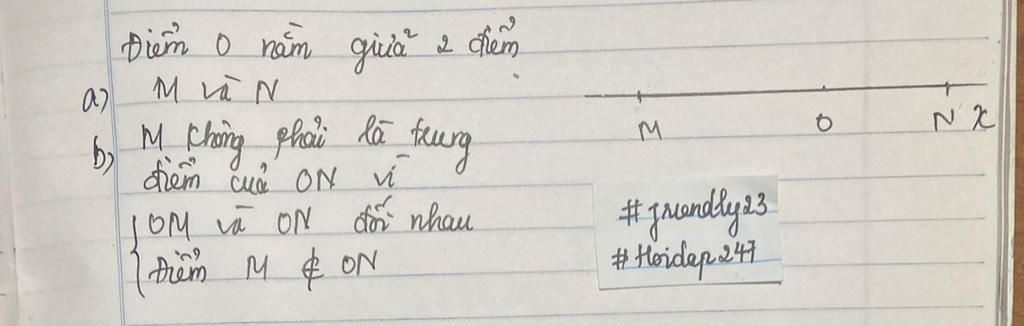 Điểm O nằm giữa 2 điểm
a) M và N
b) M không phải là trung
điểm của ON vì
OM và ON đối nhau
Điểm M ∉ ON
M O N x
#friendly23
#Hoidap247